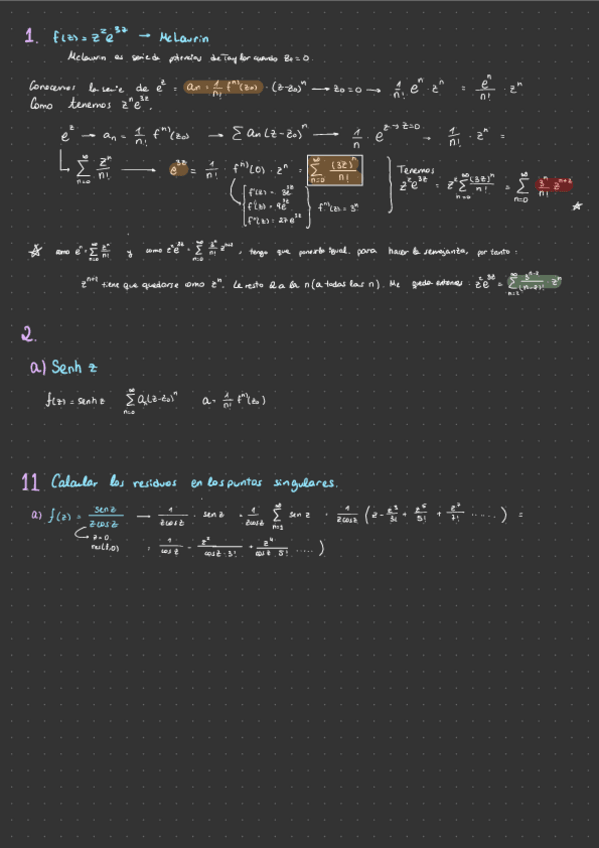 1. f(z) = z^z e^{3z} → McLaurin
McLaurin es serie de potencias de Taylor cuando z₀ = 0.
Conocemos la serie de e^z = a_n = 1/n! f^{n)}(z₀) · (z-z₀)^n → z₀ = 0 → 1/n! e^n · z^n = e^n/n! · z^n
Como tenemos z^n e^{3z}.
e^z → a_n = 1/n! f^{n)}(z₀) → ∑ a_n (z-z₀)^n → 1/n · e^{z→z=0} → 1/n! · z^n =
∑_{n=0}^∞ z^n/n! → e^{3z} = 1/n! · f^{n)}(0) · z^n = ∑_{n=0}^∞ (3z)^n/n! Tenemos
f'(z) = 3e^{3z} z^z e^{3z} = z^z ∑_{n=0}^∞ (3z)^n/n! = ∑_{n=0}^∞ 3^n/n! z^{n+2}
f''(z) = 9e^{3z} f^{n)}(z) = 3^n
f'''(z) = 27e^{3z}
☆ como e^z = ∑_{n=0}^∞ z^n/n! y como z^z e^{3z} = ∑_{n=0}^∞ 3^n/n! z^{n+2}, tengo que ponerlo igual para hacer la semejanza, por tanto:
z^{n+2} tiene que quedarse como z^n. Le resto 2 a la n (a todas las n). Me queda entonces: z^z e^{3z} = ∑_{n=2}^∞ 3^{n-2}/(n-2)! · z^n
2.
a) Senh z
f(z) = senh z ∑_{n=0}^∞ a_n (z-z₀)^n a = 1/n! f^{n)}(z₀)
11 Calcular los residuos en los puntos singulares.
a) f(z) = sen z / z cos z → 1/z cos z · sen z = 1/z cos z ∑_{n=1}^∞ sen z · 1/z cos z (z - z³/3! + z⁵/5! + z⁷/7! ......) =
z=0
res(f,0) = 1/cos z - z²/cos z · 3! + z⁴/cos z · 5! .....)